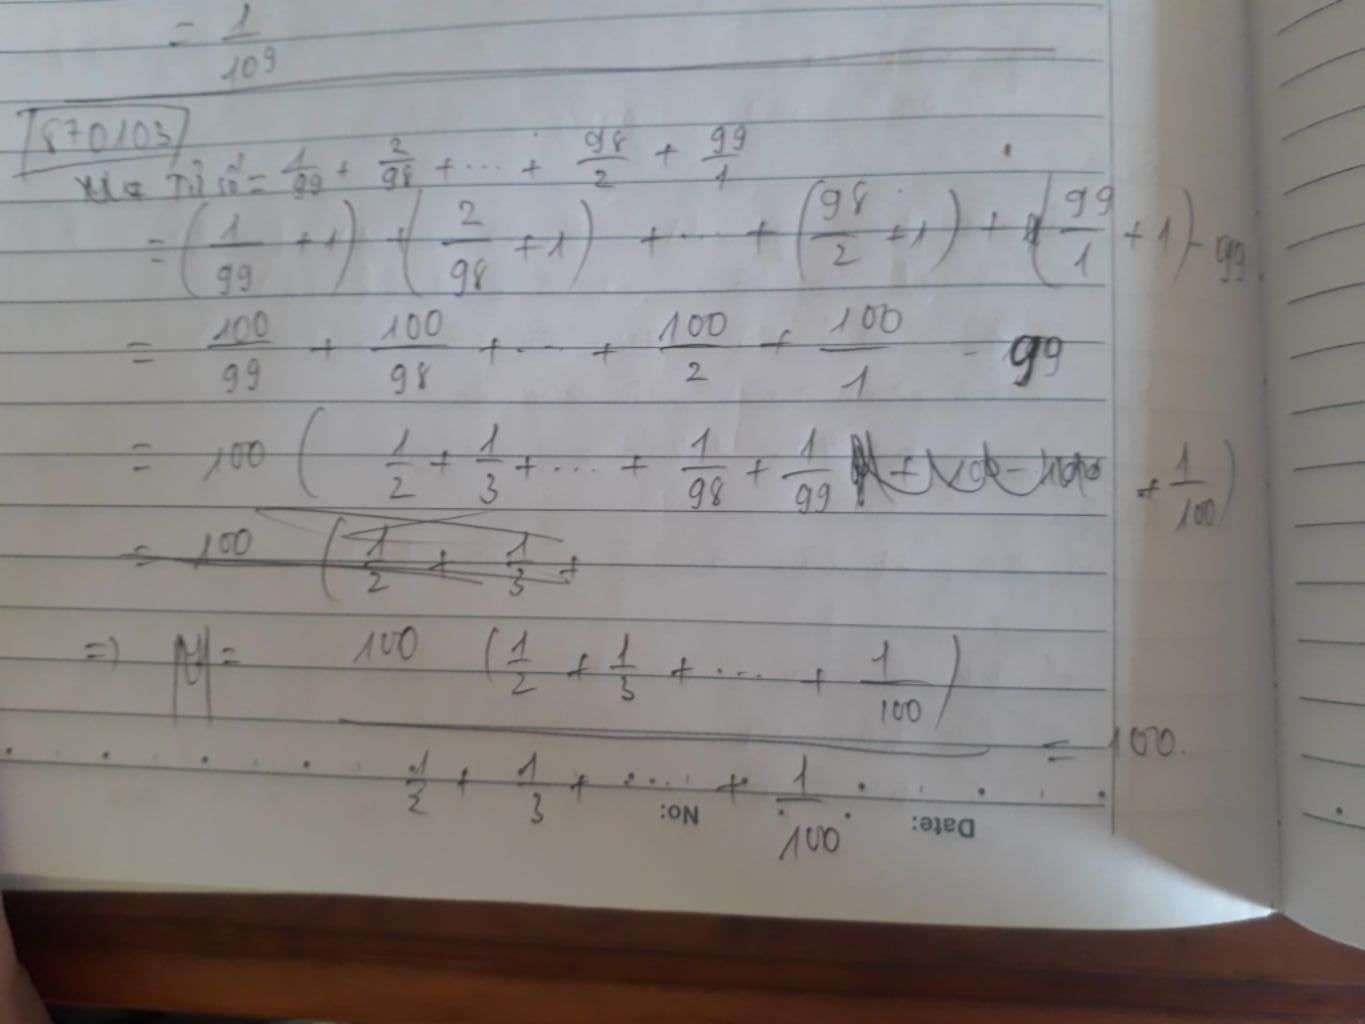 = 1/109
870103
Tử số = 1/99 + 2/98 + ... + 98/2 + 99/1
= (1/99 + 1) + (2/98 + 1) + ... + (98/2 + 1) + (99/1 + 1) - 99
= 100/99 + 100/98 + ... + 100/2 + 100/1 - 99
= 100 (1/2 + 1/3 + ... + 1/98 + 1/99 + 1/100)
= 100 (1/2 + 1/3 +
=) M = 100 (1/2 + 1/3 + ... + 1/100) / 1/2 + 1/3 + ... + 1/100 = 100.
No:
Date: